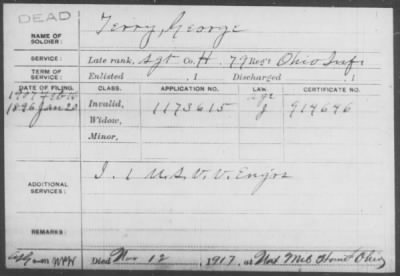 DEAD
NAME OF SOLDIER: Terry, George
SERVICE: Late rank, Sgt Co. H. 79 Reg't Ohio Inf.
TERM OF SERVICE: Enlisted , 1 Discharged , 1
DATE OF FILING. CLASS. APPLICATION NO. LAW. CERTIFICATE NO.
1896 Jan 20 Invalid, 1173615 J 914646
Widow,
Minor,
ADDITIONAL SERVICES: I. 1 U.S.V.V. Engrs
Died Nov 12, 1917, at Nat Mil Home Ohio